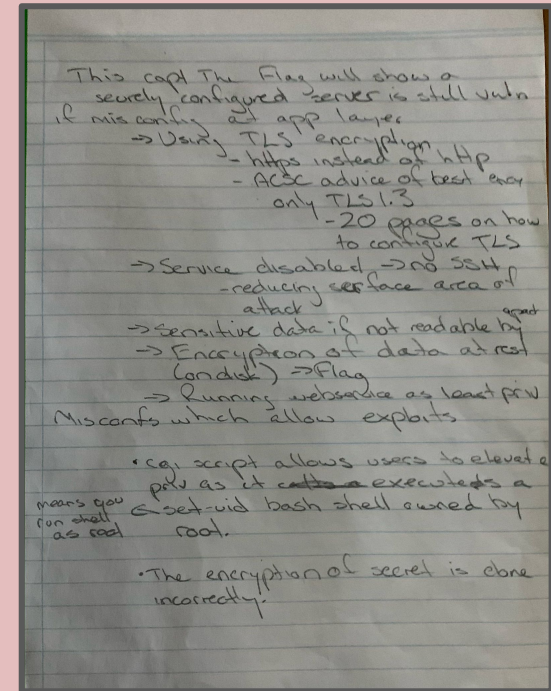 This capt The Flag will show a
securely configured server is still vuln
if misconfig at app layer
→ Using TLS encryption
- https instead of http
- ACSC advice of best ency
only TLS 1.3
- 20 pages on how
to configure TLS
→ Service disabled → no SSH
- reducing serface area of
attack
→ Sensitive data if not readable by
→ Encryption of data at rest
(on disk) → Flag
→ Running webservice as least priv
Misconfs which allow exploits
• cgi script allows users to elevate
priv as it executeds a
means you
run shell
as root
← set-uid bash shell owned by
root.
• The encryption of secret is done
incorrectly.